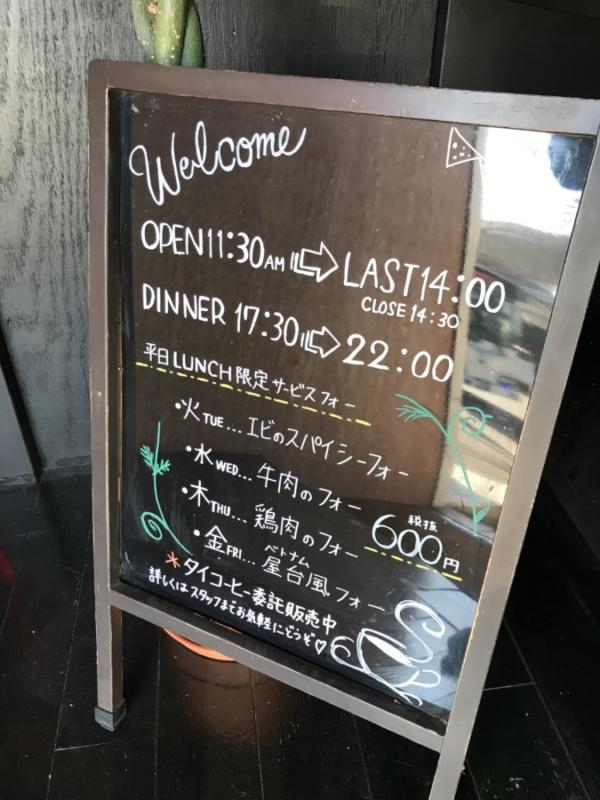 Welcome
OPEN 11:30AM ⇨ LAST 14:00
CLOSE 14:30
DINNER 17:30 ⇨ 22:00
平日LUNCH限定サービスフォー
・火TUE...エビのスパイシーフォー
・水WED...牛肉のフォー
・木THU...鶏肉のフォー
税抜
600円
ベトナム
・金FRI...屋台風フォー
*タイコーヒー委託販売中
詳しくはスタッフまでお気軽にどうぞ♡